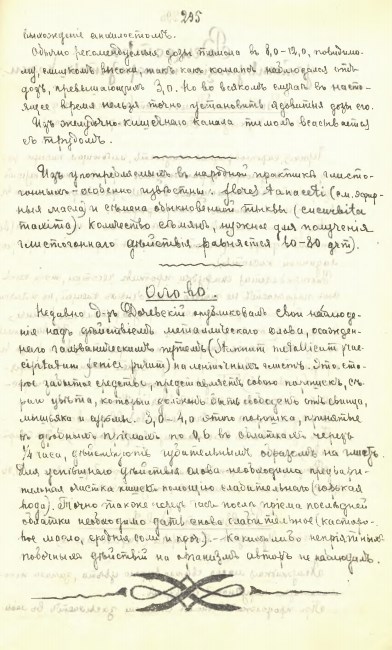 295
Обычно рекомендуемыя дозы тимола въ 8,0-12,0, повидимо-
му, слишкомъ высоки, такъ какъ команов наблюдался отъ
дозъ, превышающихъ 3,0. Но во всякомъ случаѣ въ насто-
ящее время нельзя точно установить ядовитыя дозы его.
Изъ желудочно-кишечнаго канала тимолъ всасывается
съ трудомъ.
Изъ употребляемыхъ въ народной практикѣ глисто-
гонныхъ - особенно извѣстны: flores tanaceti (см. эфир-
ныя масла) и сѣмена обыкновенной тыквы (cucurbita
maxima). Количество сѣмянъ, нужное для полученія
глистогоннаго дѣйствія равняется 60-80 gr.
Олово.
Недавно д-ръ опубликовалъ свои наблюде-
нія надъ дѣйствіемъ металлическаго олова, осажден-
наго гальваническимъ путемъ (Stannum metallicum prae-
cipitatum) на ленточныхъ глистъ. Это, ста-
рое забытое средство, представляетъ собою порошокъ, сѣ-
раго цвѣта, который долженъ быть свободенъ отъ свинца,
мышьяка и сурьмы. 3,0-4,0 этого порошка, принятые
въ дробныхъ пріемахъ по 0,6 въ облаткахъ черезъ
1/4 часа, дѣйствуютъ убійственнымъ образомъ на глистъ.
Для успѣшнаго дѣйствія олова необходима предвари-
тельная очистка кишекъ помощью слабительнаго (горькая
вода). Точно также черезъ часъ послѣ пріема послѣдней
облатки необходимо дать снова слабительное (касторо-
вое масло, среднія соли и проч.). Какихъ-либо непріятныхъ
побочныхъ дѣйствій на организмъ авторъ не наблюдалъ.